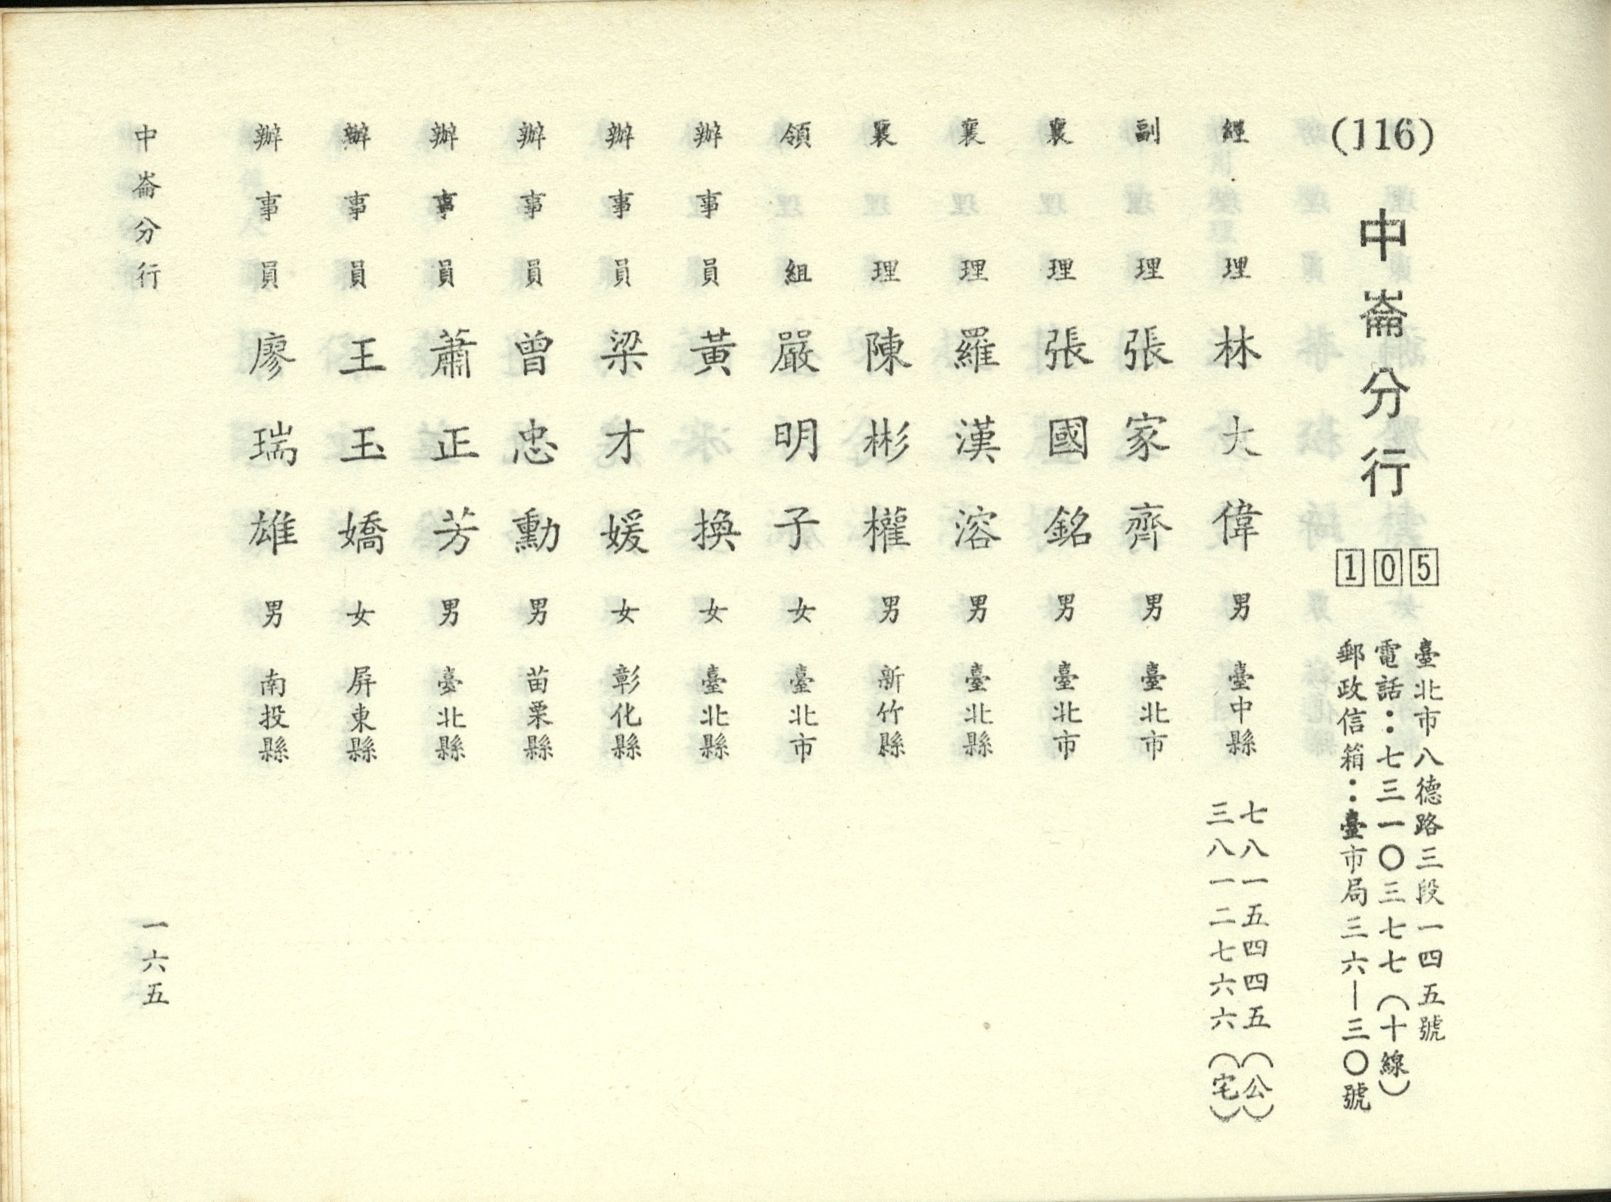 (116) 中崙分行 105
臺北市八德路三段一四五號
電話：七三一〇三七七（十線）
郵政信箱：臺市局三六—三〇號
經理 林大偉 男 臺中縣 七八一五四四五（公）
三八一二七六六（宅）
副理 張家齊 男 臺北市
襄理 張國銘 男 臺北市
襄理 羅漢溶 男 臺北縣
襄理 陳彬權 男 新竹縣
領組 嚴明子 女 臺北市
辦事員 黃換 女 臺北縣
辦事員 梁才媛 女 彰化縣
辦事員 曾忠勳 男 苗栗縣
辦事員 蕭正芳 男 臺北縣
辦事員 王玉嬌 女 屏東縣
辦事員 廖瑞雄 男 南投縣
中崙分行
一六五